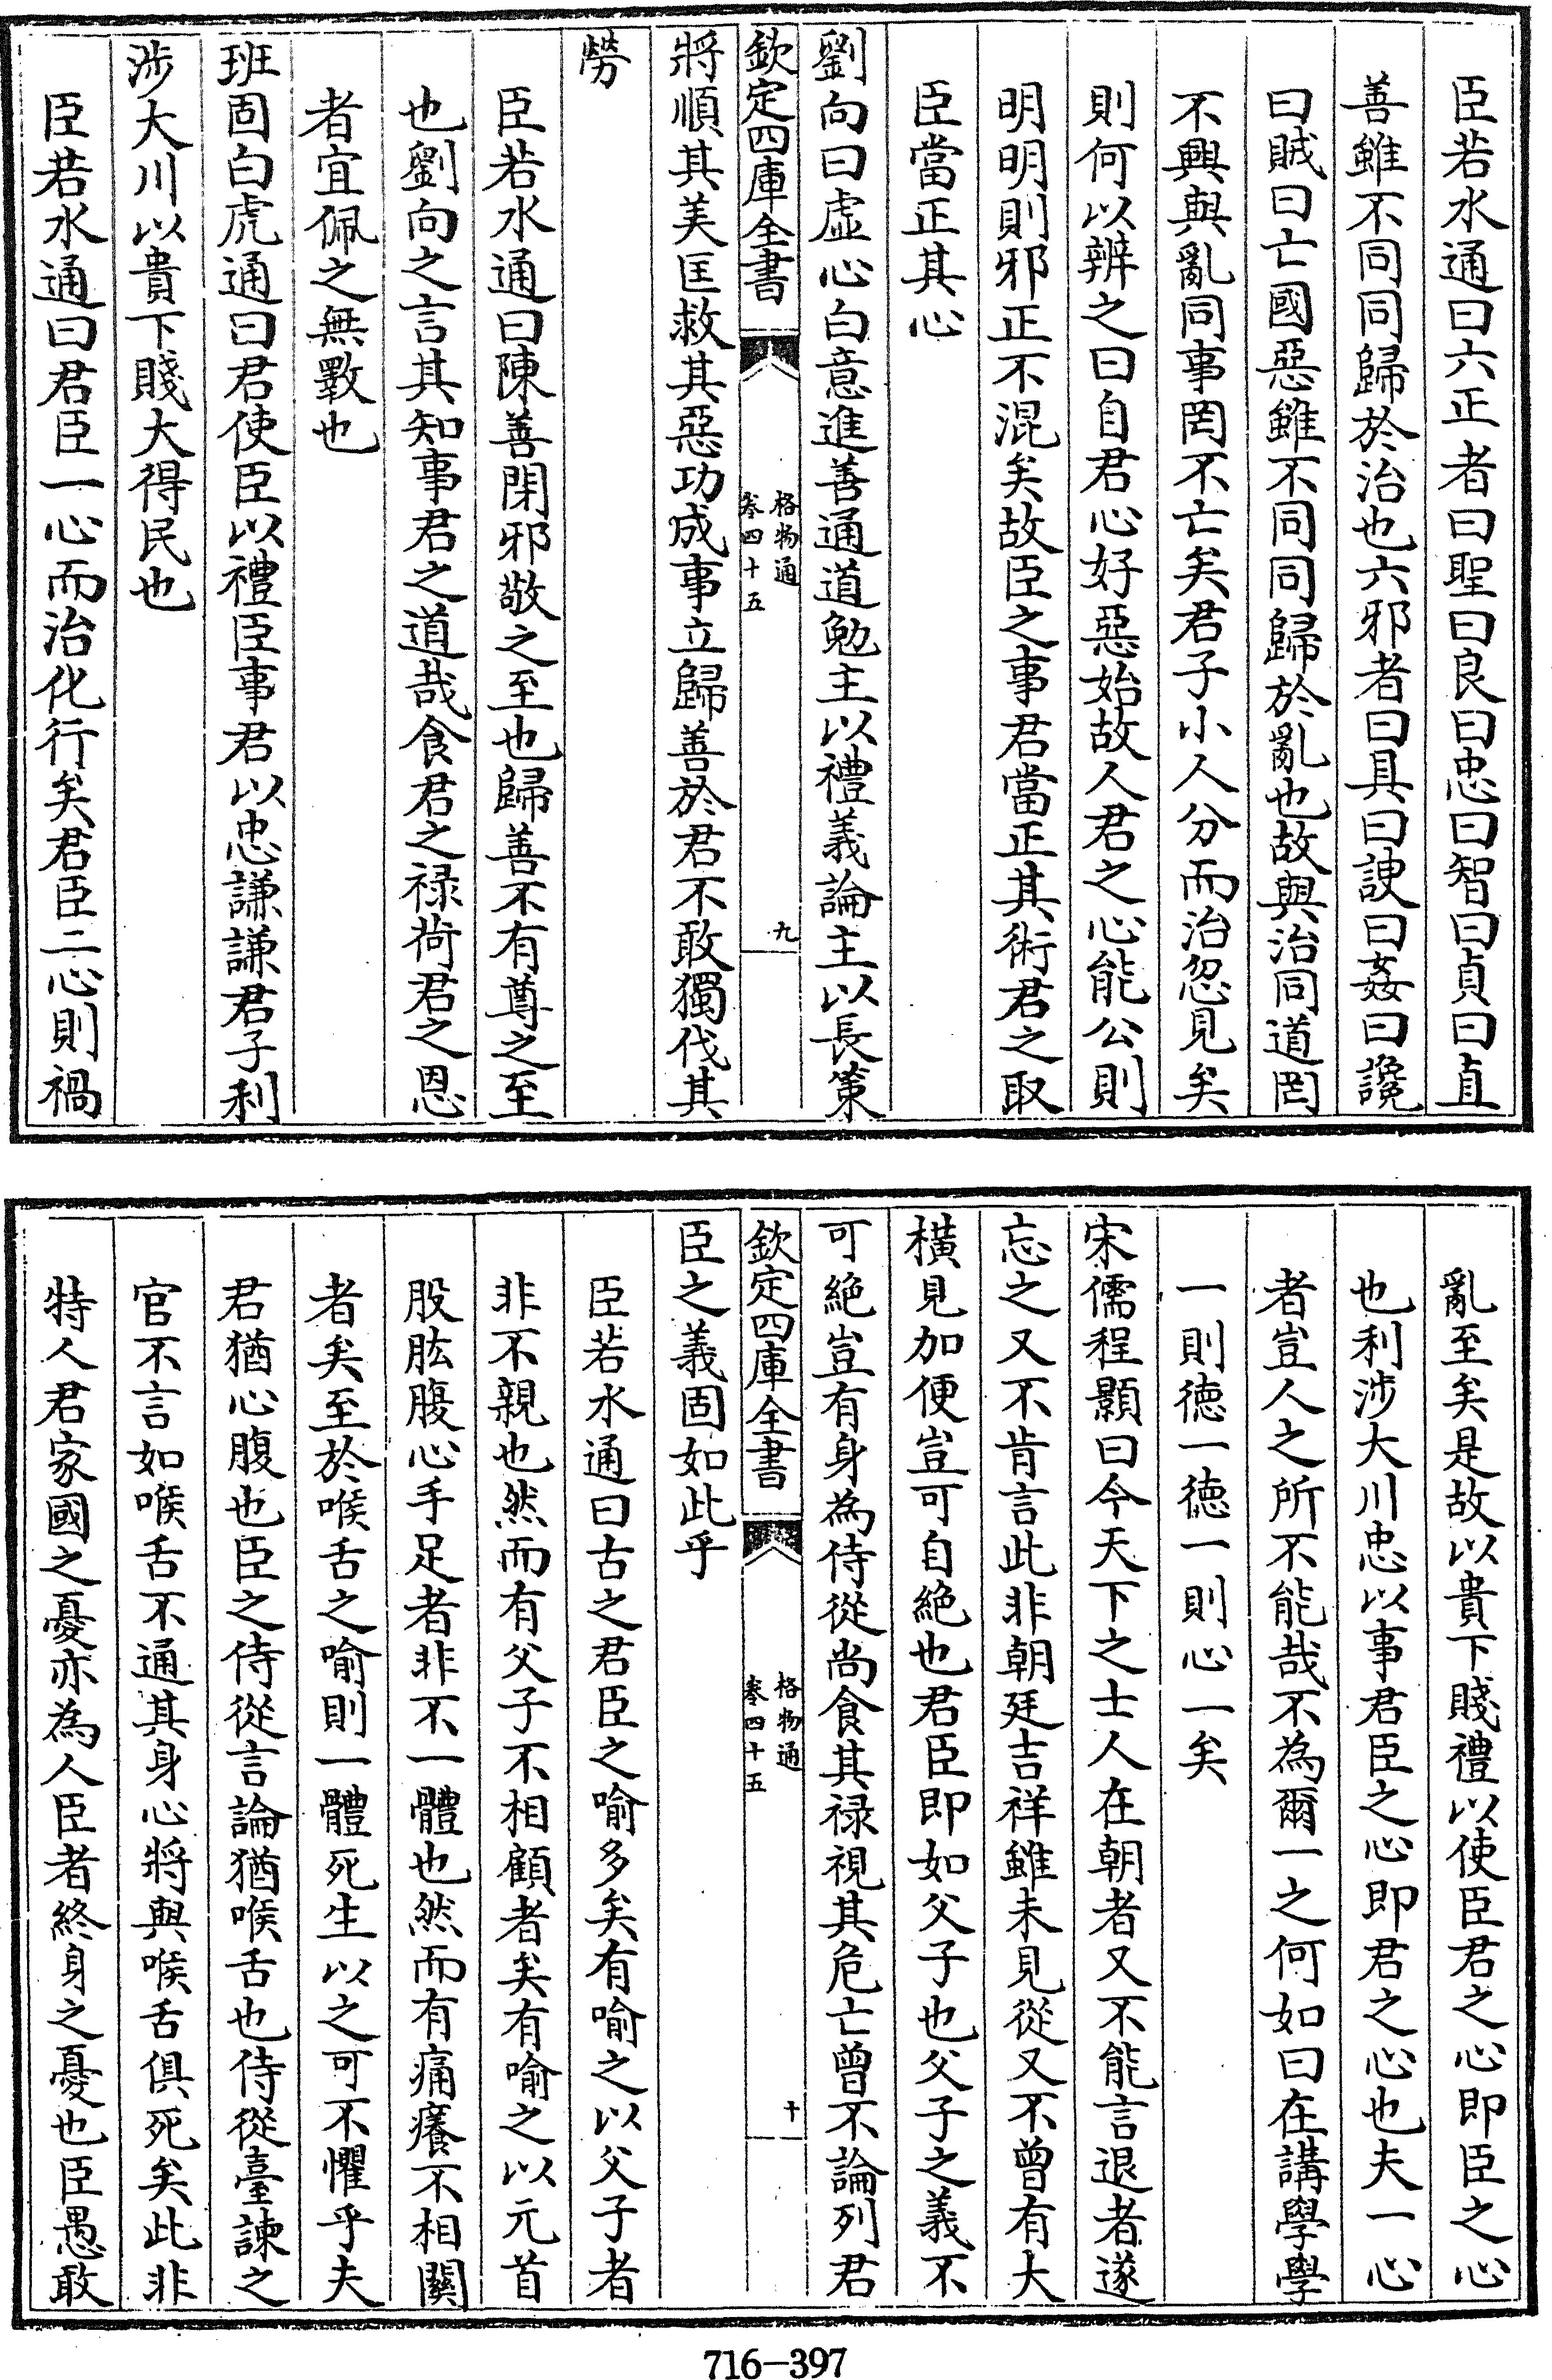 臣若水通曰六正者曰聖曰良曰忠曰智曰貞曰直
善雖不同同歸於治也六邪者曰具曰諛曰姦曰讒
曰賊曰亡國惡雖不同同歸於亂也故與治同道罔
不興與亂同事罔不亡矣君子小人分而治忽見矣
則何以辨之曰自君心好惡始故人君之心能公則
明明則邪正不混矣故臣之事君當正其術君之取
臣當正其心
劉向曰虛心白意進善通道勉主以禮義論主以長策
欽定四庫全書
格物通
卷四十五
九
將順其美匡救其惡功成事立歸善於君不敢獨伐其
勞
臣若水通曰陳善閉邪敬之至也歸善不有尊之至
也劉向之言其知事君之道哉食君之祿荷君之恩
者宜佩之無斁也
班固白虎通曰君使臣以禮臣事君以忠謙謙君子利
涉大川以貴下賤大得民也
臣若水通曰君臣一心而治化行矣君臣二心則禍
亂至矣是故以貴下賤禮以使臣君之心即臣之心
也利涉大川忠以事君臣之心即君之心也夫一心
者豈人之所不能哉不為爾一之何如曰在講學學
一則德一德一則心一矣
宋儒程顥曰今天下之士人在朝者又不能言退者遂
忘之又不肯言此非朝廷吉祥雖未見從又不曾有大
橫見加便豈可自絕也君臣即如父子也父子之義不
可絕豈有身為侍從尚食其祿視其危亡曾不論列君
欽定四庫全書
格物通
卷四十五
十
臣之義固如此乎
臣若水通曰古之君臣之喻多矣有喻之以父子者
非不親也然而有父子不相顧者矣有喻之以元首
股肱腹心手足者非不一體也然而有痛癢不相關
者矣至於喉舌之喻則一體死生以之可不懼乎夫
君猶心腹也臣之侍從言論猶喉舌也侍從臺諫之
官不言如喉舌不通其身心將與喉舌俱死矣此非
特人君家國之憂亦為人臣者終身之憂也臣愚敢
716-397